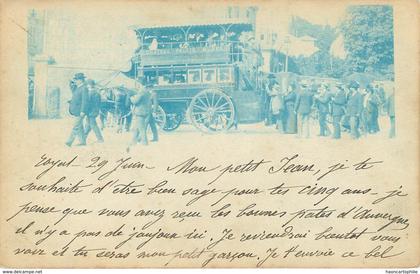 Royat 29 Juin Mon petit Jean, je te
souhaite d'être bien sage pour tes cinq ans - je
pense que vous avez reçu les bonnes pates d'Auvergne,
il n'y a pas de joujoux ici. Je reviendrai bientot vous
voir et tu seras mon petit garçon. Je t'envoie ce bel